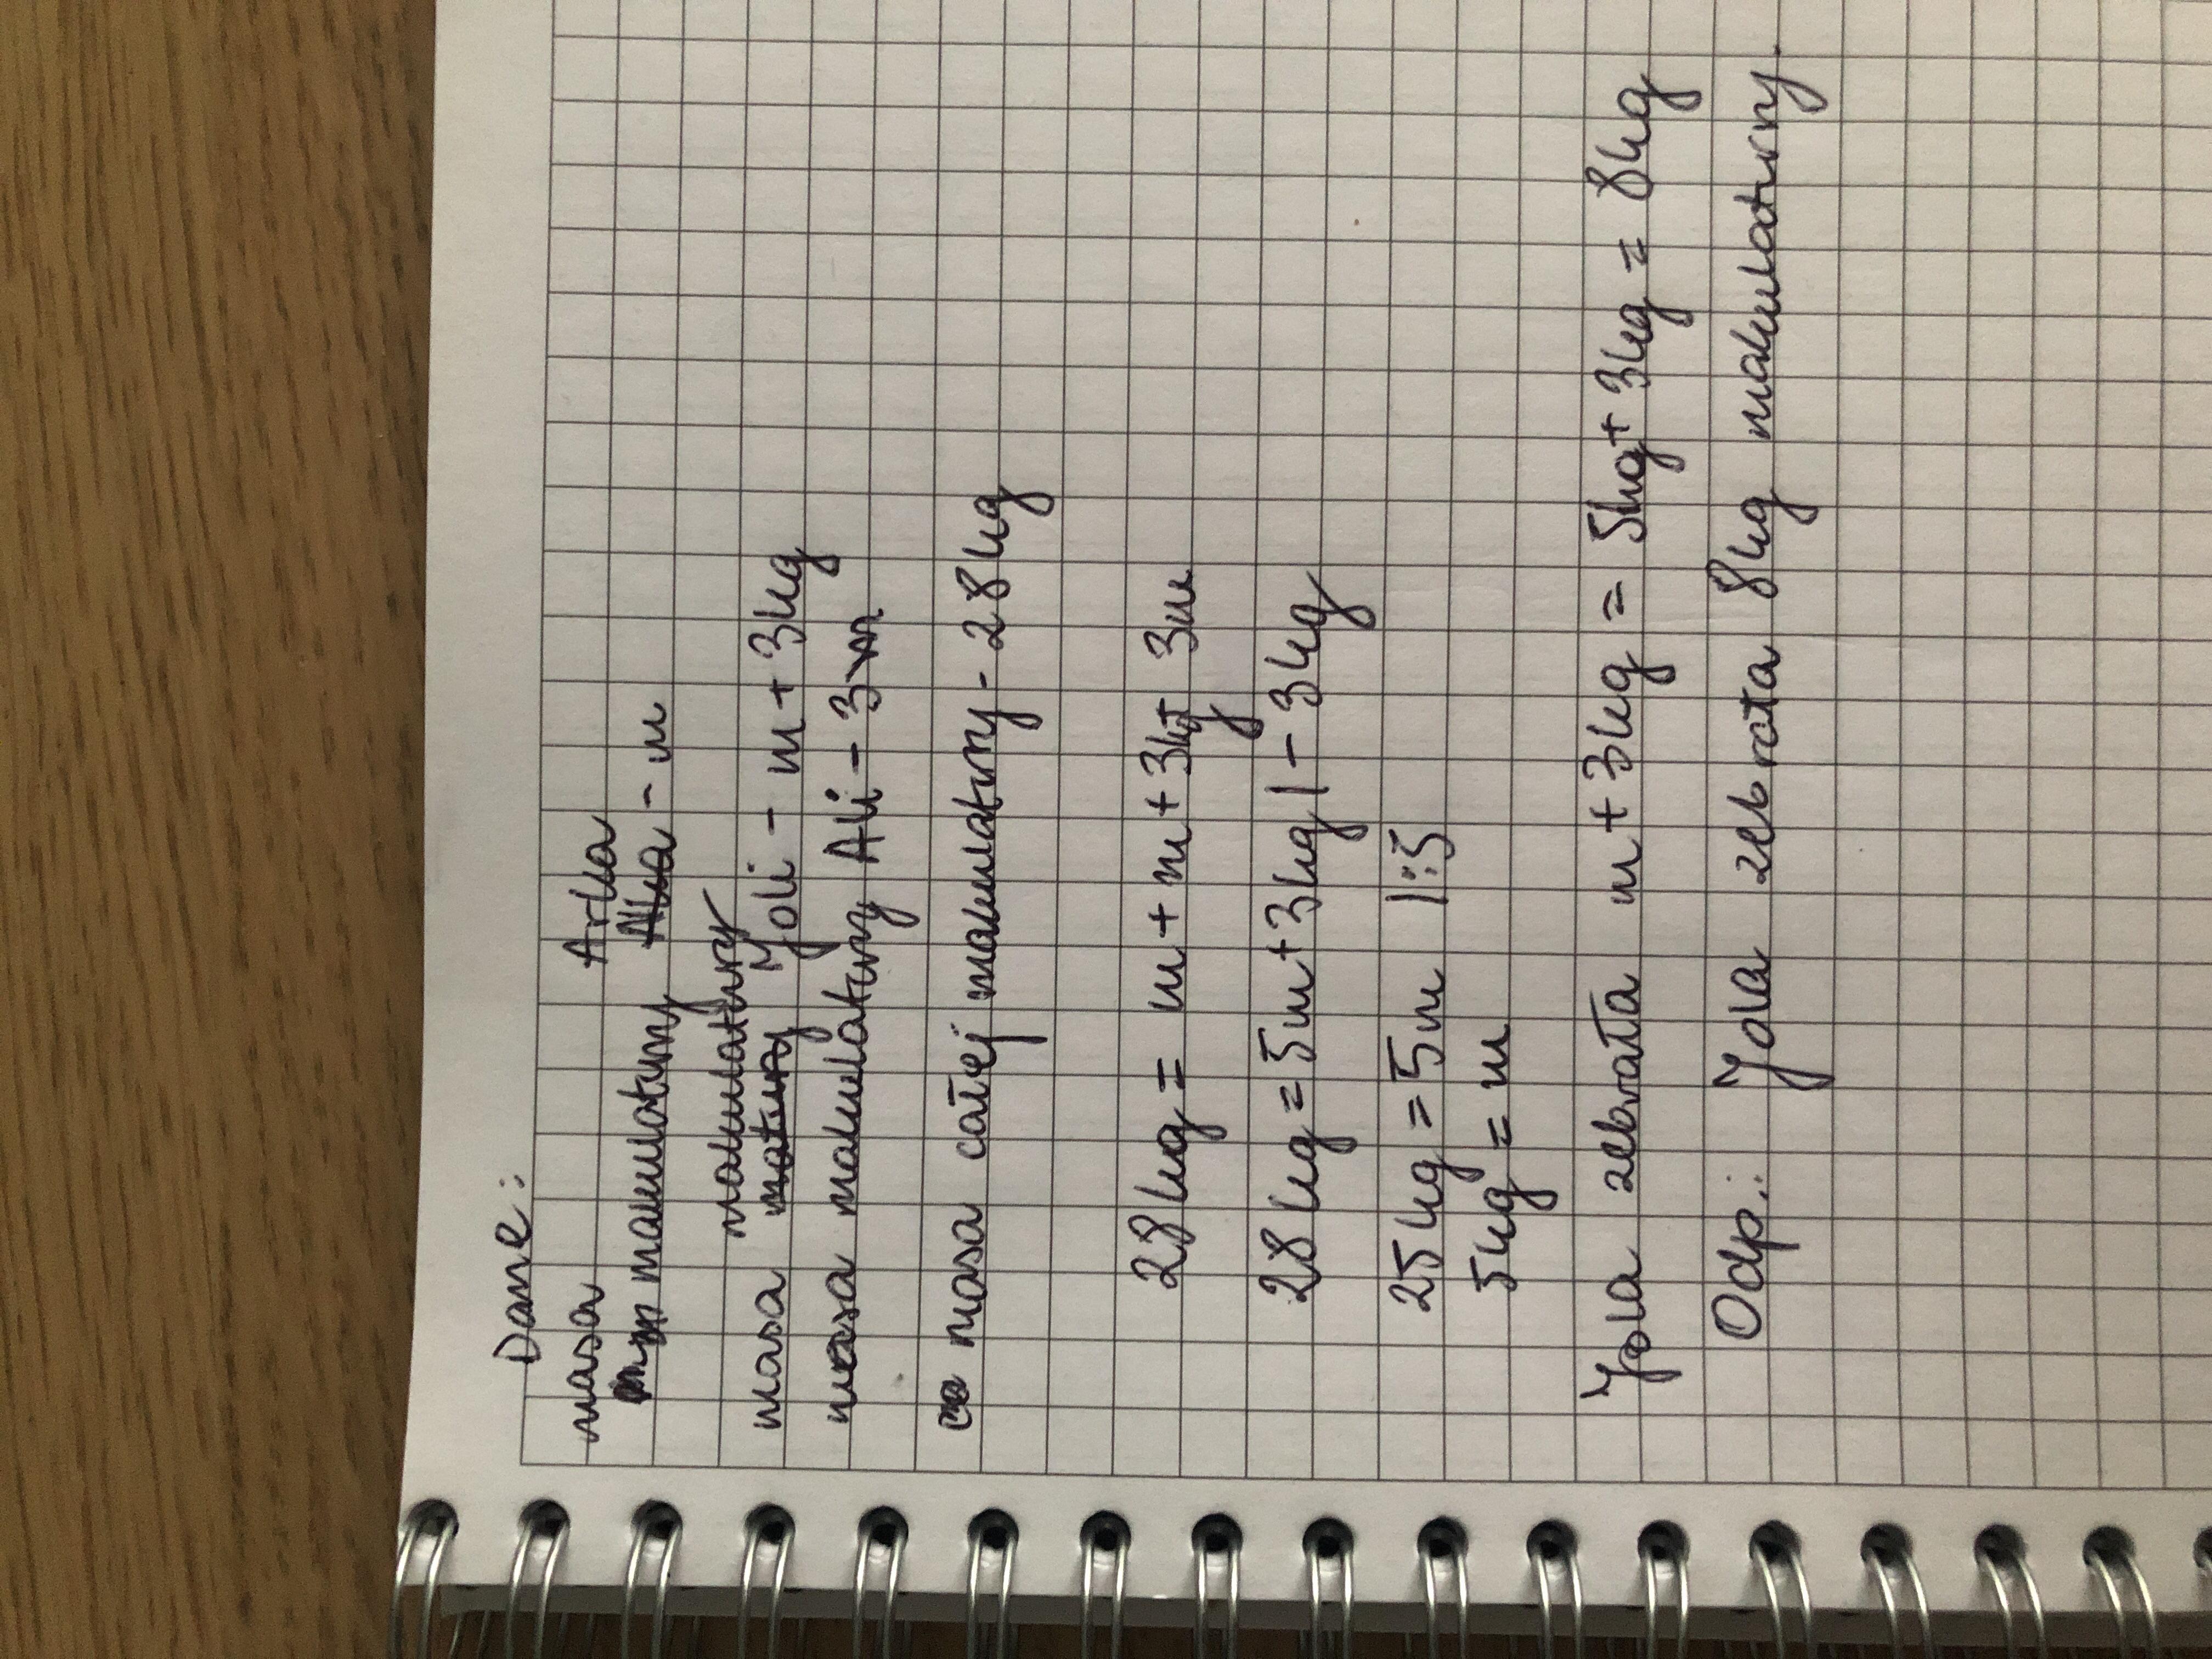 Dane:
masa Arka
makulatury - m
makulatury
masa Joli - m + 3kg
masa makulatury Ali - 3m
masa całej makulatury - 28kg
28kg = m + m + 3kg + 3m
28kg = 5m + 3kg | - 3kg
25kg = 5m |:5
5kg = m
Jola zebrała m + 3kg = 5kg + 3kg = 8kg
Odp.: Jola zebrała 8kg makulatury.